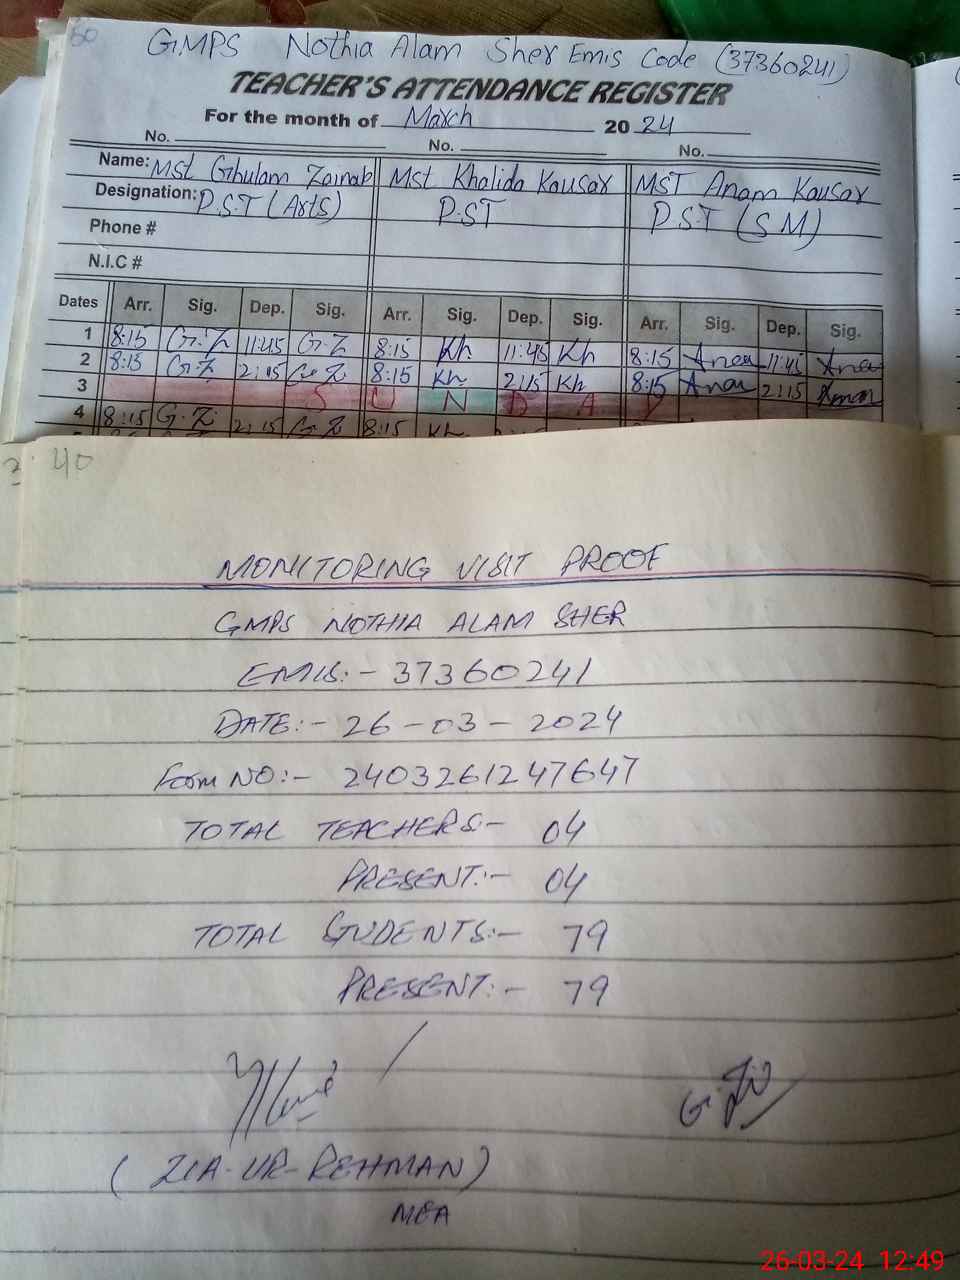 60
G.MPS Nothia Alam Sher Emis Code (37360241)
TEACHER'S ATTENDANCE REGISTER
For the month of March 2024
No. No. No.
Name: Mst Ghulam Zainab Mst Khalida Kausar MST Anam Kausar
Designation: P.S.T (Arts) P.ST P.S.T (SM)
Phone #
N.I.C #
Dates Arr. Sig. Dep. Sig. Arr. Sig. Dep. Sig. Arr. Sig. Dep. Sig.
1 8:15 G.Z 11:45 G.Z 8:15 Kh 11:45 Kh 8:15 Anam 11:45 Anam
2 8:15 G.Z 2:15 G.Z 8:15 Kh 2:15 Kh 8:15 Anam 2:15 Anam
3 S U N D A Y
4 8:15 G.Z 2:15 G.Z 8:15 Kh
40
MONITORING VISIT PROOF
GMPS NOTHIA ALAM SHER
EMIS:- 37360241
DATE:- 26-03-2024
Form NO:- 2403261247647
TOTAL TEACHERS:- 04
PRESENT:- 04
TOTAL STUDENTS:- 79
PRESENT:- 79
(ZIA-UR-REHMAN)
MEA
26-03-24 12:49